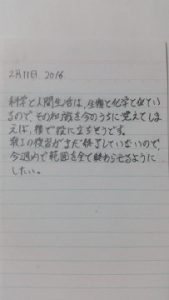 2月11日 2016
科学と人間生活は、生物と化学と似てい
るので、その知識を今のうちに覚えてしま
えば、後で役に立ちそうです。
の復習がまだ終了していないので、
今週内で範囲を全て終わらせるように
したい。